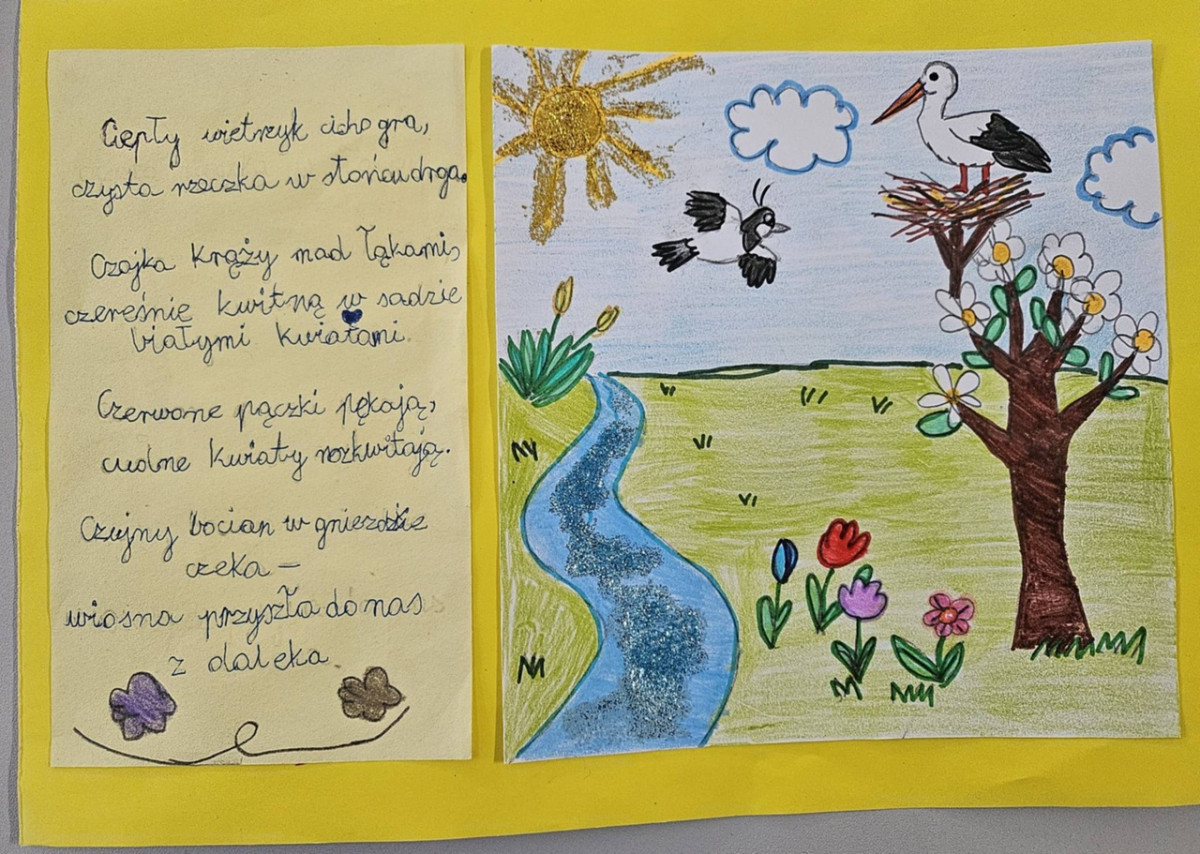 Ciepły wietrzyk cicho gra,
czysta rzeczka w słońcu drga.
Czajka krąży nad łąkami,
czereśnie kwitną w sadzie
białymi kwiatami.
Czerwone pączki pękają,
cudne kwiaty rozkwitają.
Czujny bocian w gnieździe
czeka –
wiosna przyszła do nas
z daleka